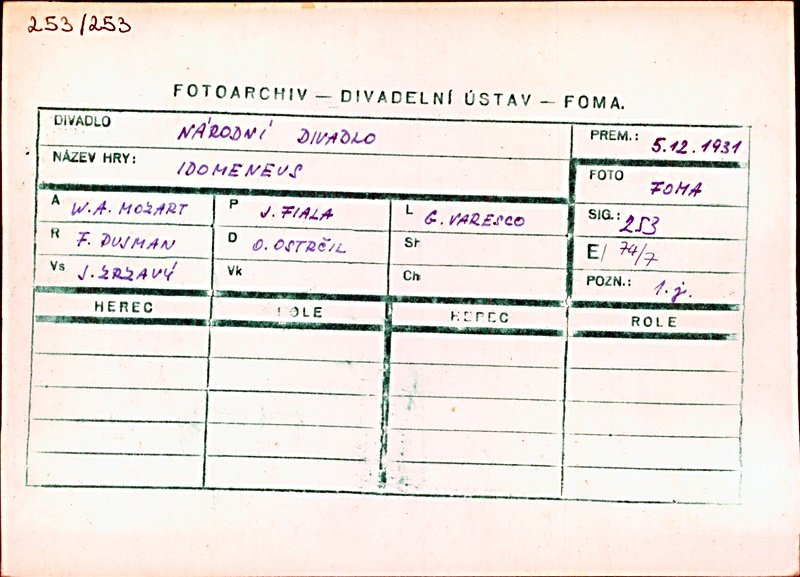 253/253
FOTOARCHIV — DIVADELNÍ ÚSTAV — FOMA.
DIVADLO NÁRODNÍ DIVADLO PREM.: 5.12.1931
NÁZEV HRY: IDOMENEUS FOTO FOMA
A W.A. MOZART P J. FIALA L G. VARESCO SIG.: 253
R F. PUJMAN D O. OSTRČIL Sh E/ 74/7
Vs J. ZRZAVÝ Vk Ch POZN.: 1. j.
HEREC ROLE HEREC ROLE